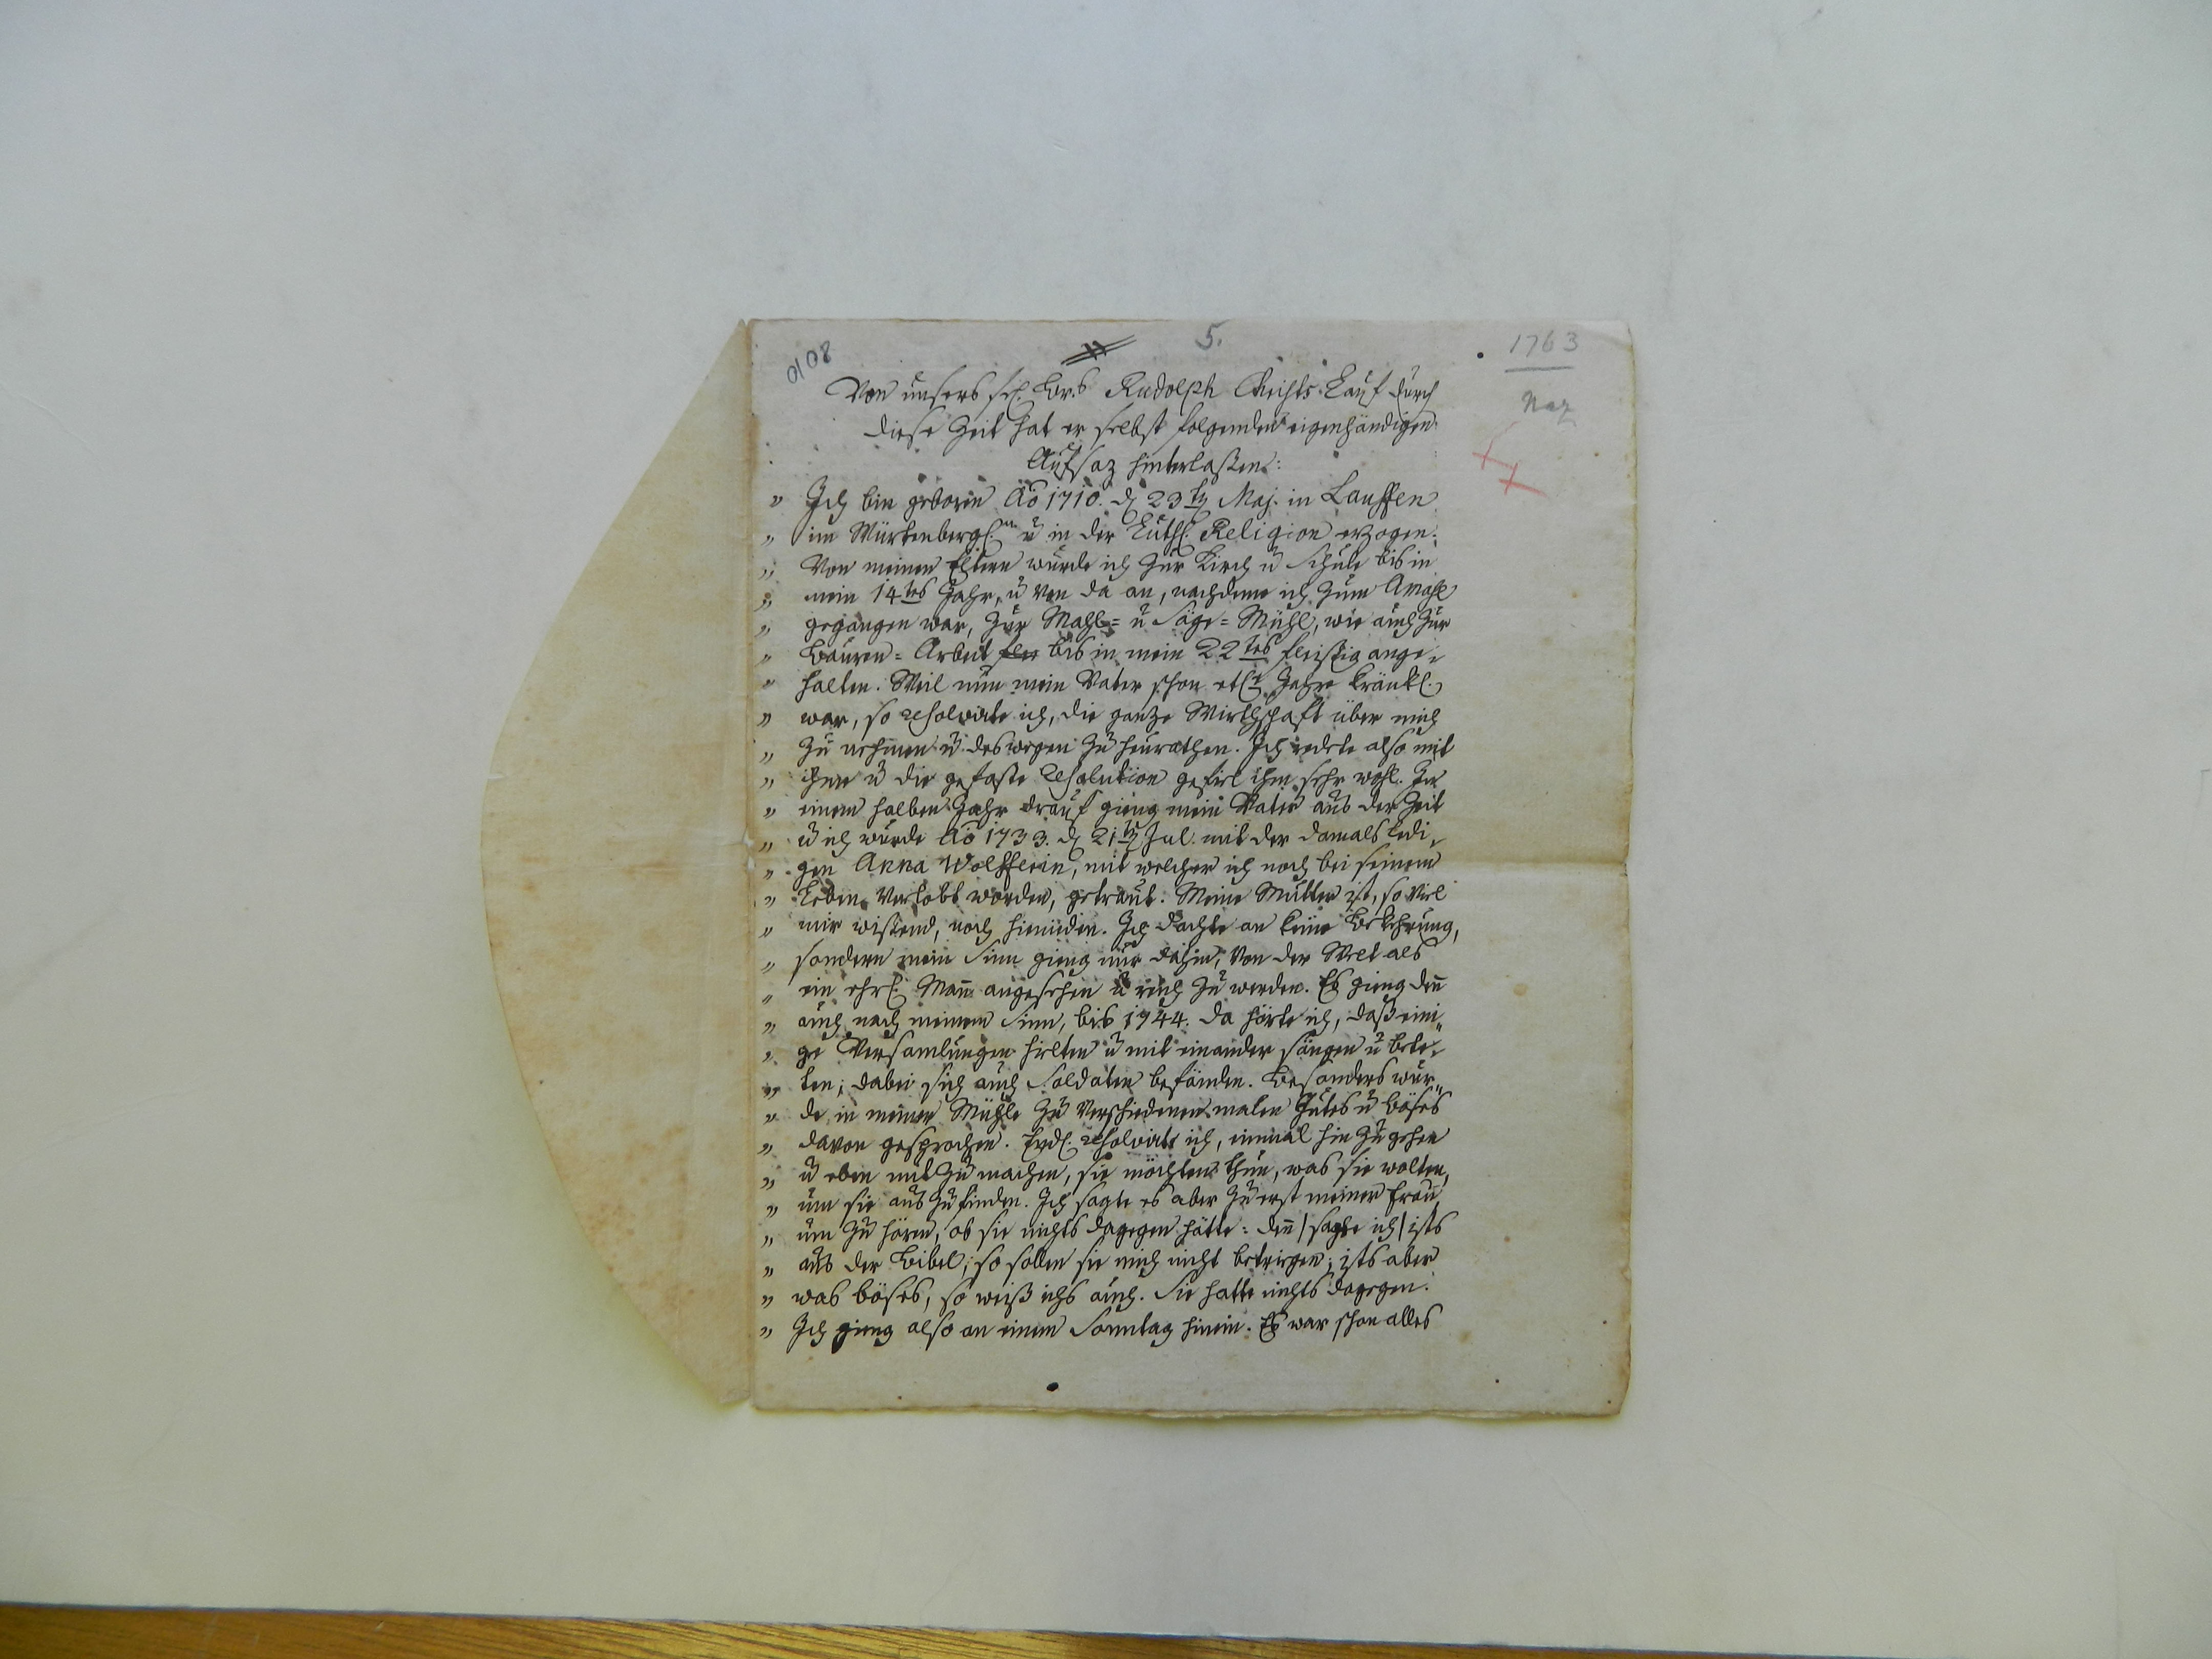 0108
5.
1763
Naz
Von unsers sel. Br.s Rudolph Christs Lauf durch
diese Zeit hat er selbst folgenden eigenhändigen
Aufsaz hinterlaßen:
" Ich bin geboren Ao 1710. d 23ten Maj. in Lauffen
" im Würtenbergl.en u in der Luthl. Religion erzogen.
" Von meinen Eltern wurde ich zur Kirch u Schule bis in
" mein 14tes Jahr, u von da an, nachdeme ich zum Amahl
" gegangen war, zur Mahl= u Säge=Mühl, wie auch zur
" Bauren=Arbeit bis in mein 22tes fleißig ange-
" halten. Weil nun mein Vater schon etle Jahre kränkl.
" war, so resolvirte ich, die ganze Wirthschaft über mich
" zu nehmen u deswegen zu heurathen. Ich redete also mit
" ihme u die gefaste Resolution gefiel ihm sehr wohl. In
" einem halben Jahr drauf gieng mein Vater aus der Zeit
" u ich wurde Ao 1733. d 21ten Jul. mit der damals ledi-
" gen Anna Wolfferin, mit welcher ich noch bei seinem
" Leben Verlobt worden, getraut. Meine Mutter ist, so viel
" mir wißend, noch hienieden. Ich dachte an keine Bekehrung,
" sondern mein Sinn gieng nur dahin, von der Welt als
" ein ehrl. Mann angesehen u reich zu werden. Es gieng denn
" auch nach meinem Sinn, bis 1744. da hörte ich, daß eini"
" ge Versamlungen hielten u mit einander sängen u bete-
" ten; dabei sich auch Soldaten befänden. Besonders wur"
" de in meiner Mühle zu verschiedenen malen Gutes u Böses
" davon gesprochen. Endl. resolvirte ich, einmal hin zu gehen
" u eben mit zu machen, sie möchten thun, was sie wolten,
" um sie aus zu finden. Ich sagte es aber zu erst meiner Frau,
" um zu hören, ob sie nichts dagegen hätte: denn /sagte ich/ ists
" aus der Bibel, so sollen sie mich nicht betriegen; ists aber
" was böses, so weiß ichs auch. Sie hatte nichts dagegen.
" Ich gieng also an einem Sonntag hinein. Es war schon alles